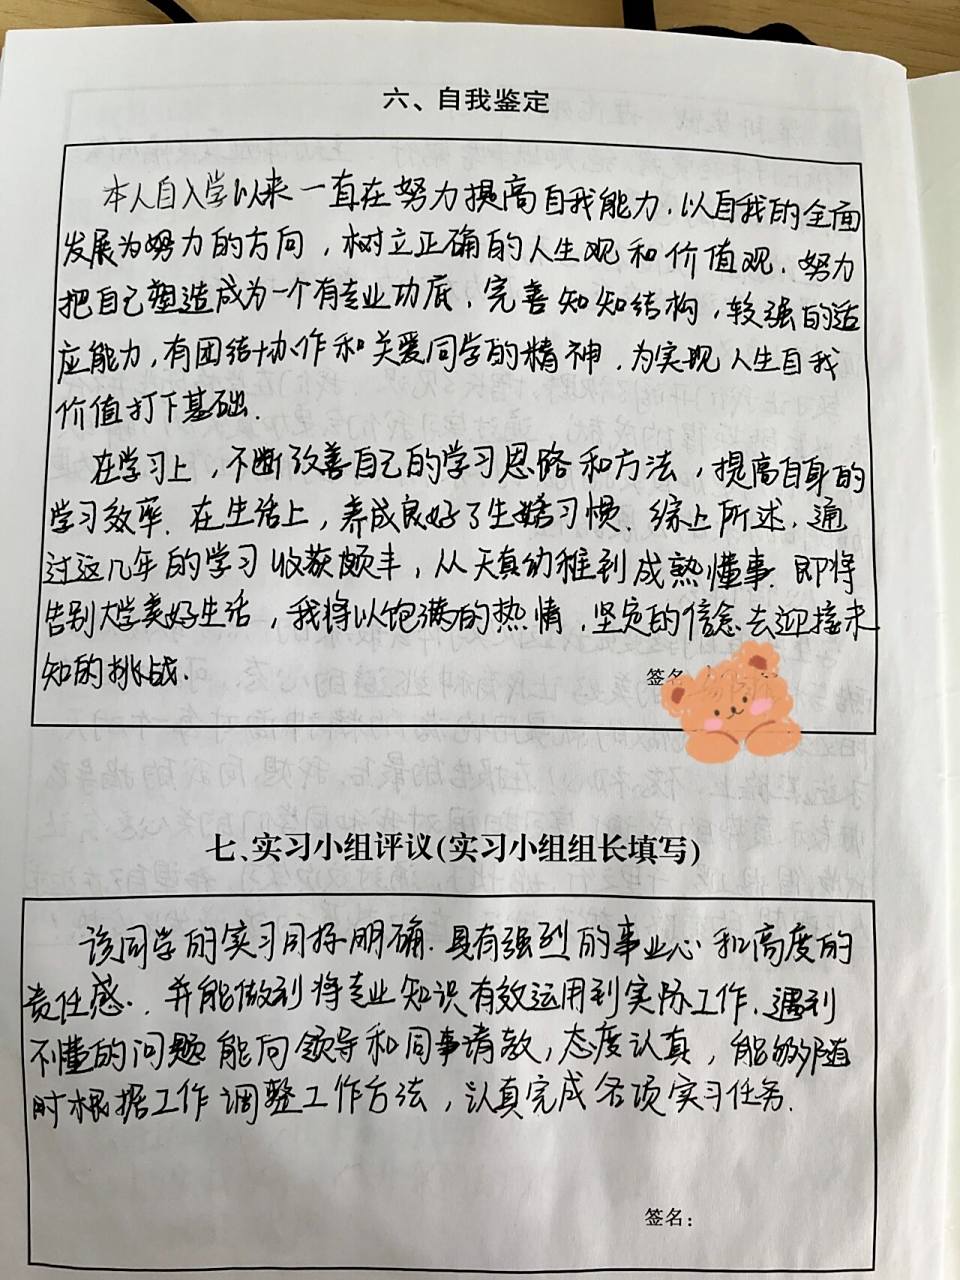 六、自我鉴定
本人自入学以来一直在努力提高自我能力.以自我的全面
发展为努力的方向，树立正确的人生观和价值观.努力
把自己塑造成为一个有专业功底.完善知知结构，较强的适
应能力,有团结协作和关爱同学的精神.为实现人生自我
价值打下基础.
在学习上，不断改善自己的学习思路和方法，提高自身的
学习效率.在生活上，养成良好了生活习惯.综上所述.通
过这几年的学习收获颇丰，从天真幼稚到成熟懂事.即将
告别大学美好生活，我将以饱满的热情，坚定的信念去迎接未
知的挑战.
签名
七、实习小组评议(实习小组组长填写)
该同学的实习目标明确.具有强烈的事业心和高度的
责任感.并能做到将专业知识有效运用到实际工作.遇到
不懂的问题能向领导和同事请教，态度认真，能够随
时根据工作调整工作方法，认真完成各项实习任务.
签名：